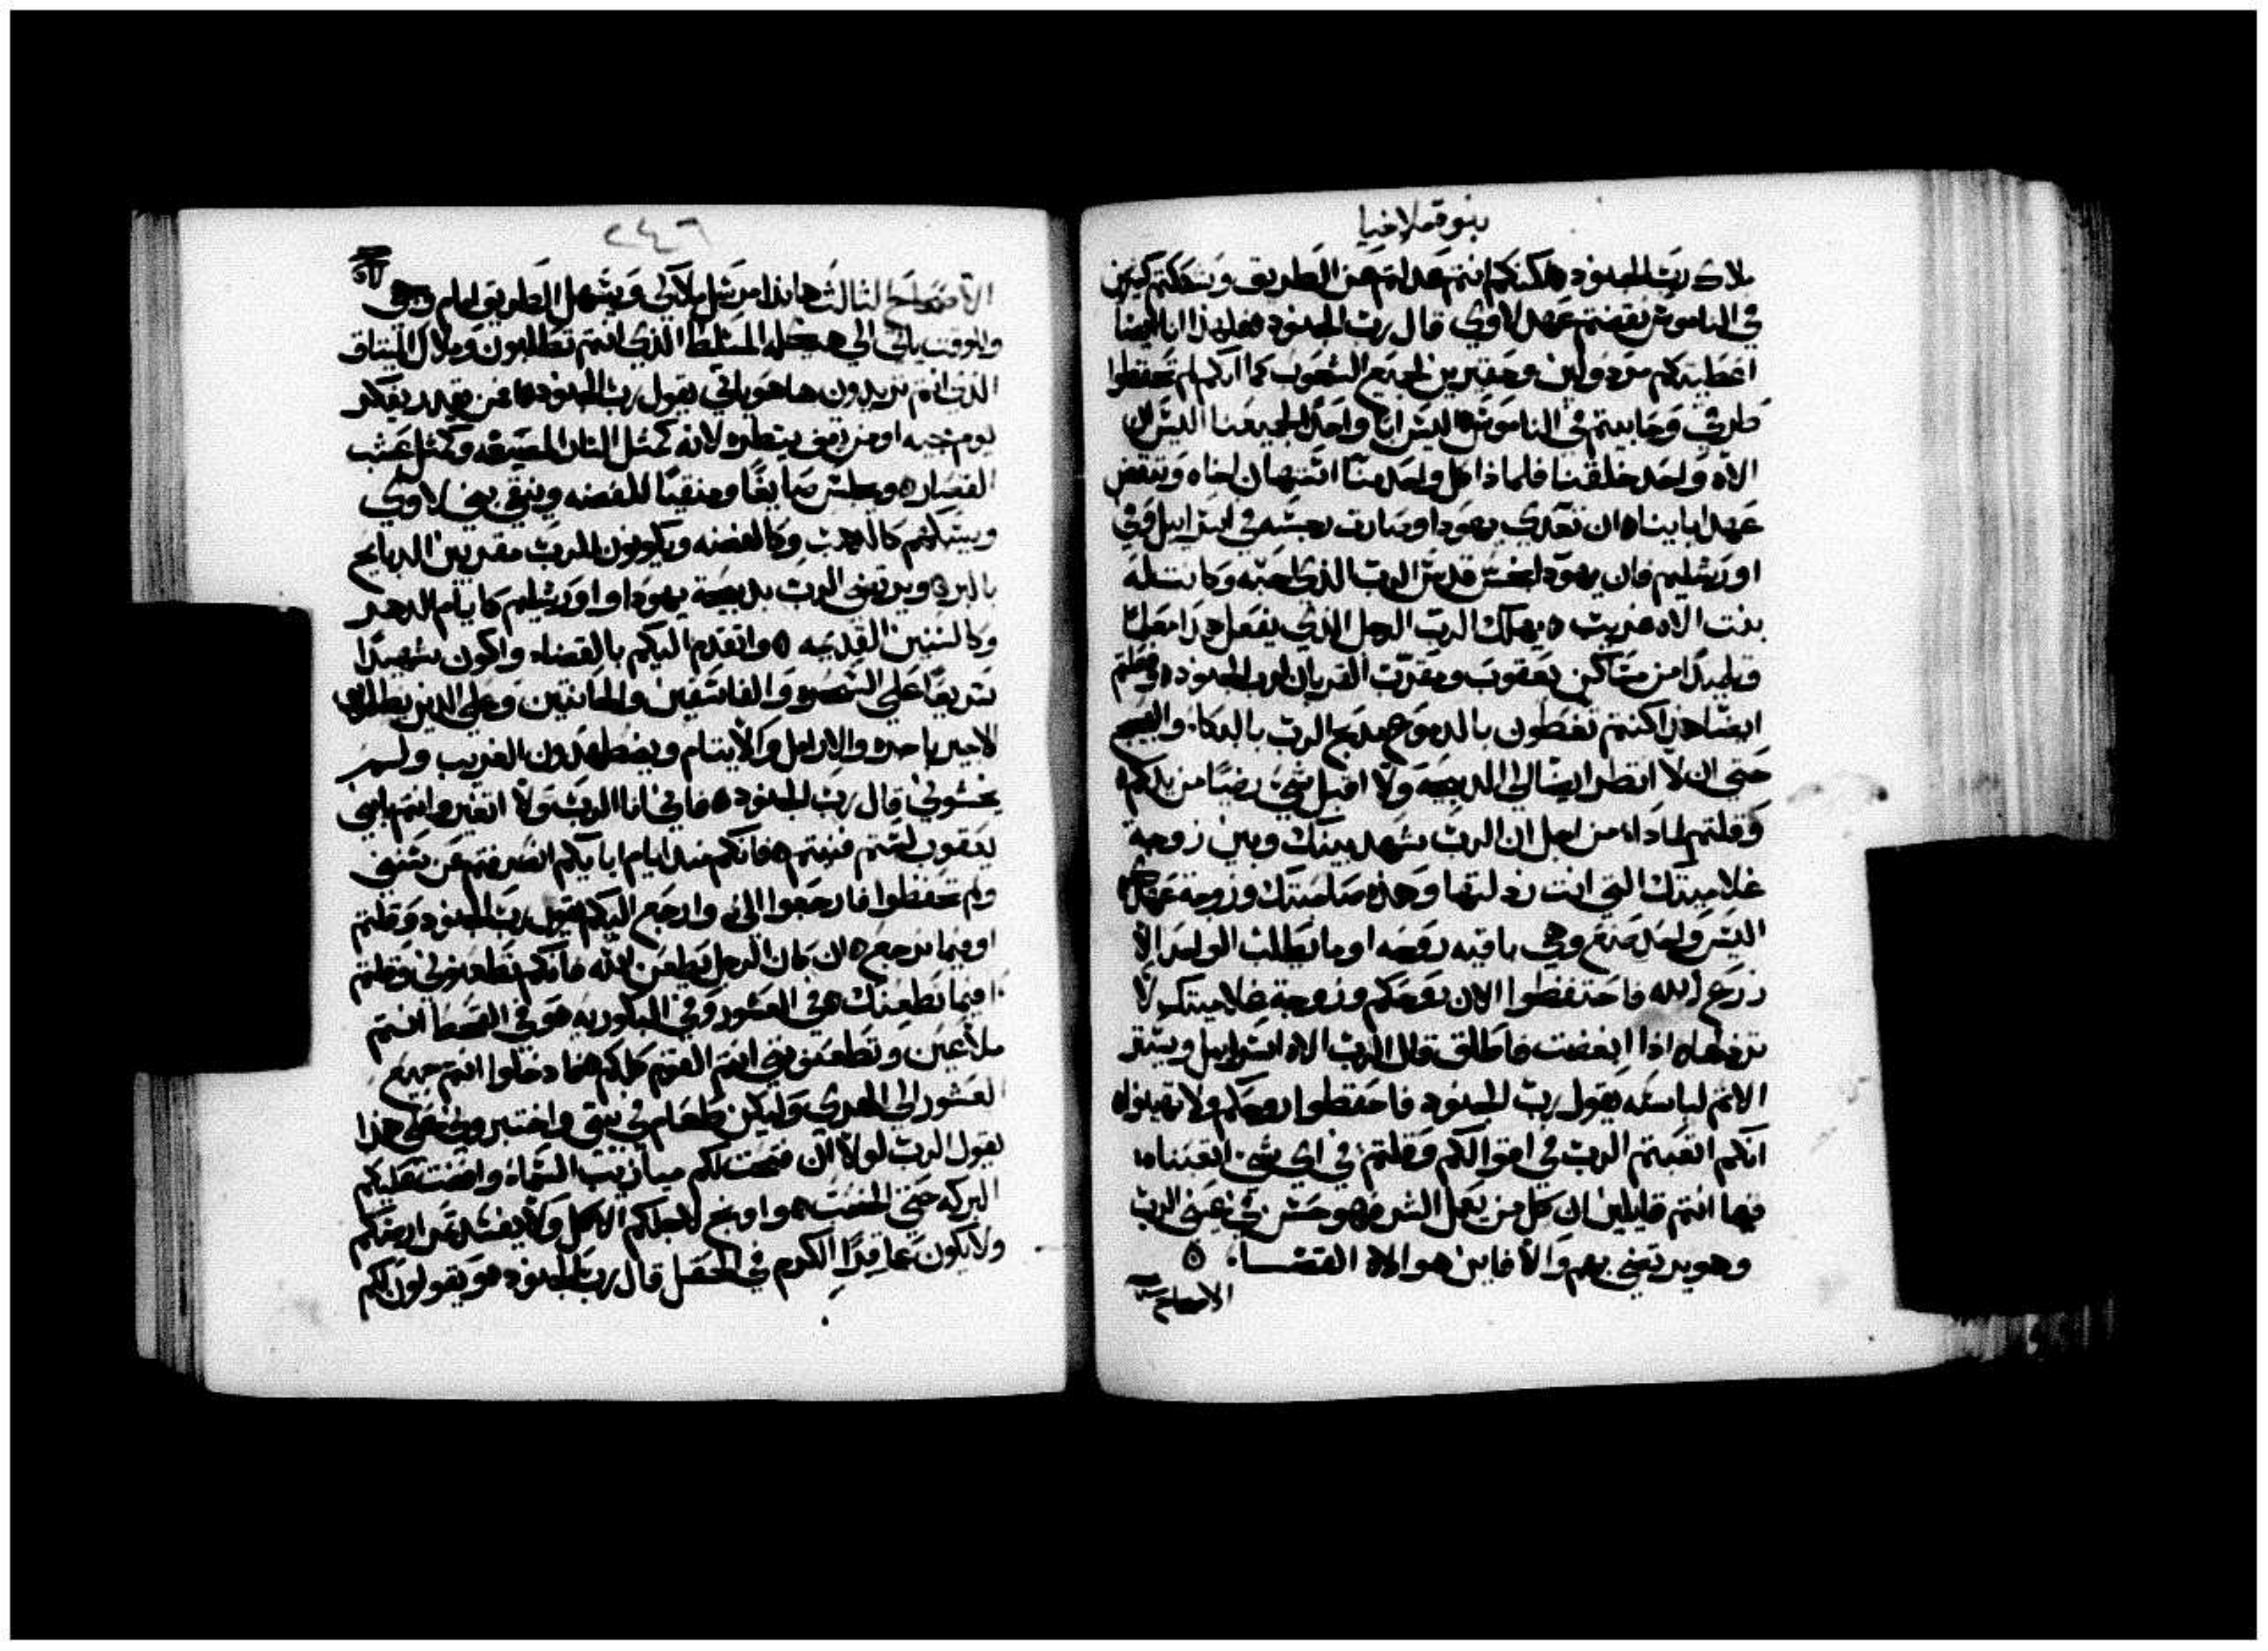 بنوة ملاخيا
ملاك رب الجنود ٥ لكنكم انتم حدتم عن الطريق وشككتم كثيرين
في الناموس نقضتم عهد لاوي قال رب الجنود ٥ فلهذا انا ايضا
اعطيتكم مردولين وحقيرين لجميع الشعوب كما انكم لم تحفظوا
طرقي وحابيتم في الناموس ٥ اليس ابا واحدا لجميعنا اليس ان
الاه واحد خلقنا فلماذا كل واحد منا استهان اخاه وننقض
عهد ابايناه ان تعدي يهودا وصارت رجسه في اسراييل وفي
اورشليم فان يهودا نجس قدس الرب الذي احبه وكانت له
بنت الاه غريب ٥ يهلك الرب الرجل الذي يفعل هذا معلما
وتلميدا من مساكن يعقوب ومقرب القربان لرب الجنود ٥ وفعلتم
ايضا هذا كنتم تغطون بالدموع مدبح الرب بالبكاء والضجيج
حتي ان لا انظر ايضا الي الدبيحه ولا اقبل شي رضيا من يدكم ٥
وقلتم لماذاه من اجل ان الرب شهد بينك وبين زوجة
غلاميتك التي انت ردلتها وهذه صاحبتك وزوجة عهدك ٥
اليس واحد صنع وهي باقيه روحه او ما يطلب الواحد الا
زرع الله فاحتفظوا الان روحكم وزوجة غلاميتك لا
تردلها ٥ اذا ابغضت فاطلق قال الرب الاه اسراييل ويستر
الاتم لباسه يقول رب الجنود فاحفظوا روحكم ولا تهينوا ٥
انكم اتعبتم الرب في اقوالكم وقلتم في اي شي اتعبناه
فبما انتم قايلين ان كل من يعمل الشر فهو حسن في عيني الرب
وهو يرتضي بهم والا فاين هو الاه القضاء ٥
الاصحاح
٢٤٦
الاصحاح الثالث هانذا مرسل ملاكي ويسهل الطريق امام وجهي
وللوقت ياتي الي هيكله المسلط الذي انتم تطلبون وملاك الميتاق
الذي انتم تريدون ها هو ياتي يقول رب الجنود ٥ من يقدر يفكر
يوم مجيه او من يقف ينظره لانه كمثل النار المصيغه وكمثل عشب
القصار ٥ ويجلس صايغا ومنقيا للفضه وينقي بني لاوي
ويسبكهم كالدهب وكالفضه ويكونون للرب مقدمين الدبايح
بالبر ٥ ويرتضي الرب بدبيحة يهودا واورشليم كايام الدهر
وكالسنين القديمه ٥ واتقدم اليكم بالقضاء واكون شهيدا
سريعا علي السحره والفاسقين والحانتين وعلي الدين يظلموا
الاجير باجره والارامل والايتام ويضطهدون الغريب ولم
يخشوني قال رب الجنود ٥ فاني انا الرب ولا اتغير وانتم يا بني
يعقوب لستم فنيتم ٥ فانكم منذ ايام ابايكم انصرفتم عن سنني
ولم تحفظوا فارجعوا الي وارجع اليكم يقول رب الجنود وقلتم
اوبما نرجع ٥ ان كان الرجل يطعن الله فانكم تطعنوني وقلتم
افبما نطعنك هي العشور وفي البكوريه هو في القحط انتم
ملاعين وتطعنوني انتم القوم كلكم هنا دخلوا انتم جميع
العشور الي الهري وليكن طعام في بيتي واختبروني في هذا
يقول الرب لولا ان فتحت لكم ميازيب السماء وافضت عليكم
البركه حتي اوبخ لاجلكم الاكل ولا يفسد تمر ارضكم
ولا يكون عاقدا الكرم في الحقل قال رب الجنود ٥ ويقولون لكم